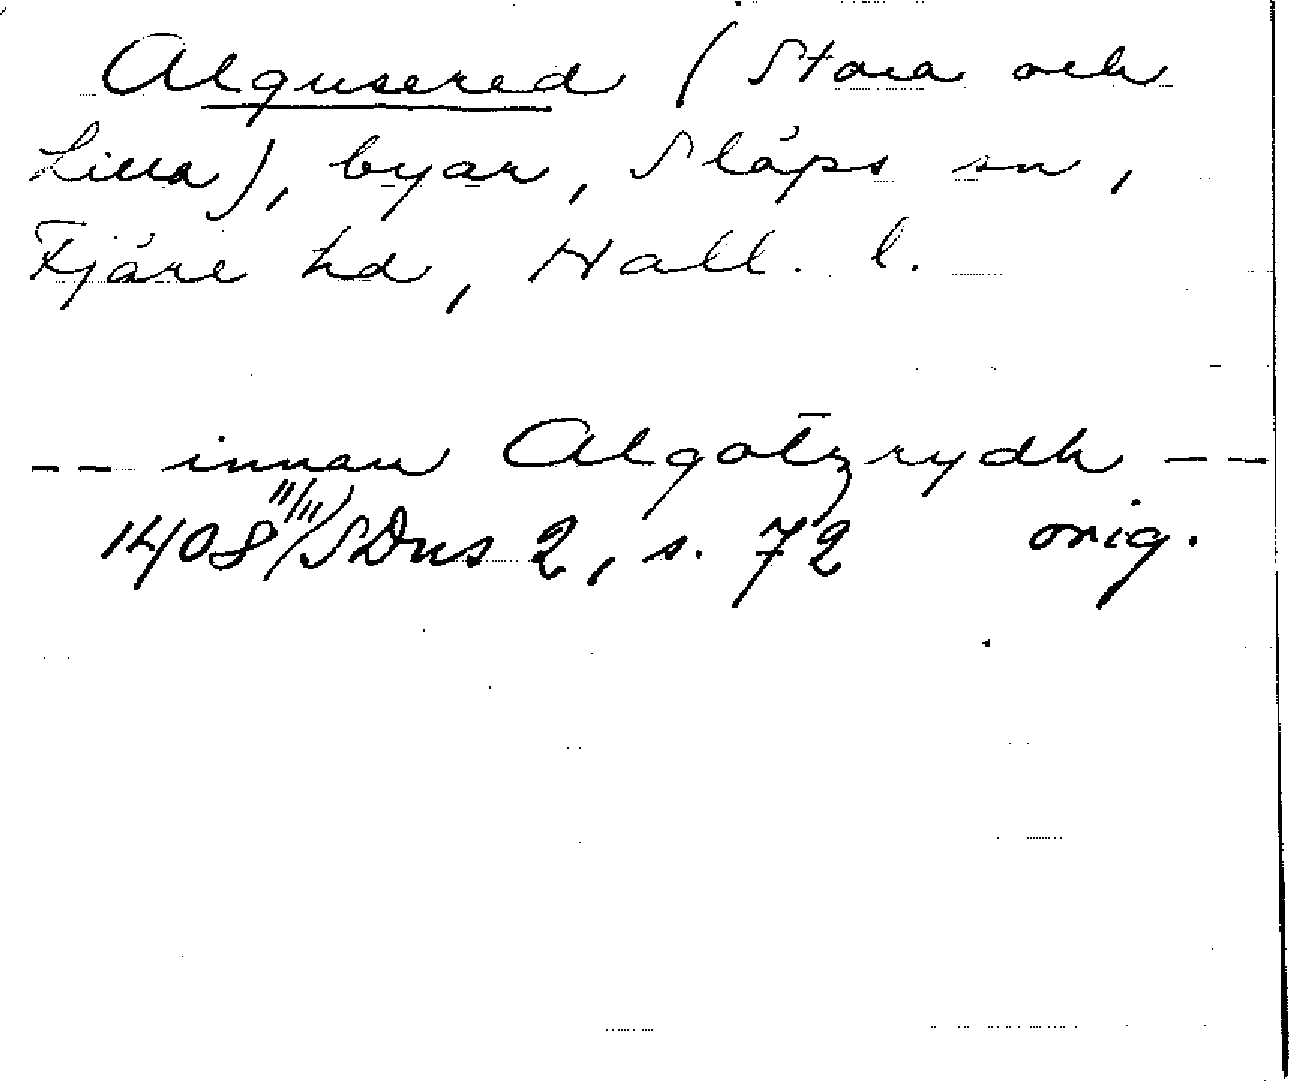 Algusered (Stora och
Lilla), byar, Släps sn,
Fjäre hd, Hall. l.
-- innan Algotzrydh --
1408 11/11 SDns 2, s. 72 orig.